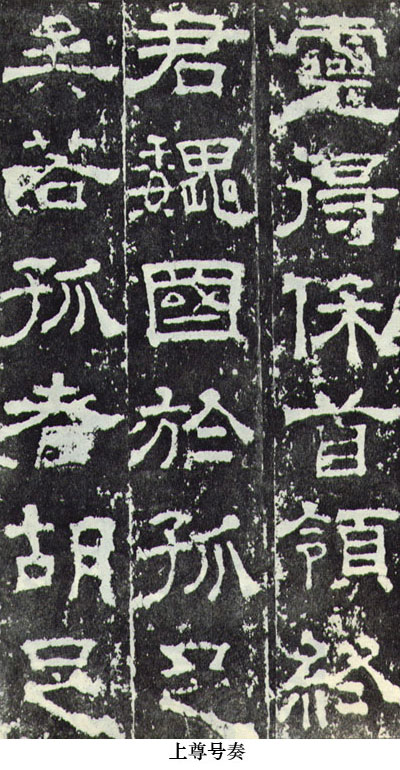 靈得保首領終
君魏國於孤足
矣若孤者胡足
上尊号奏